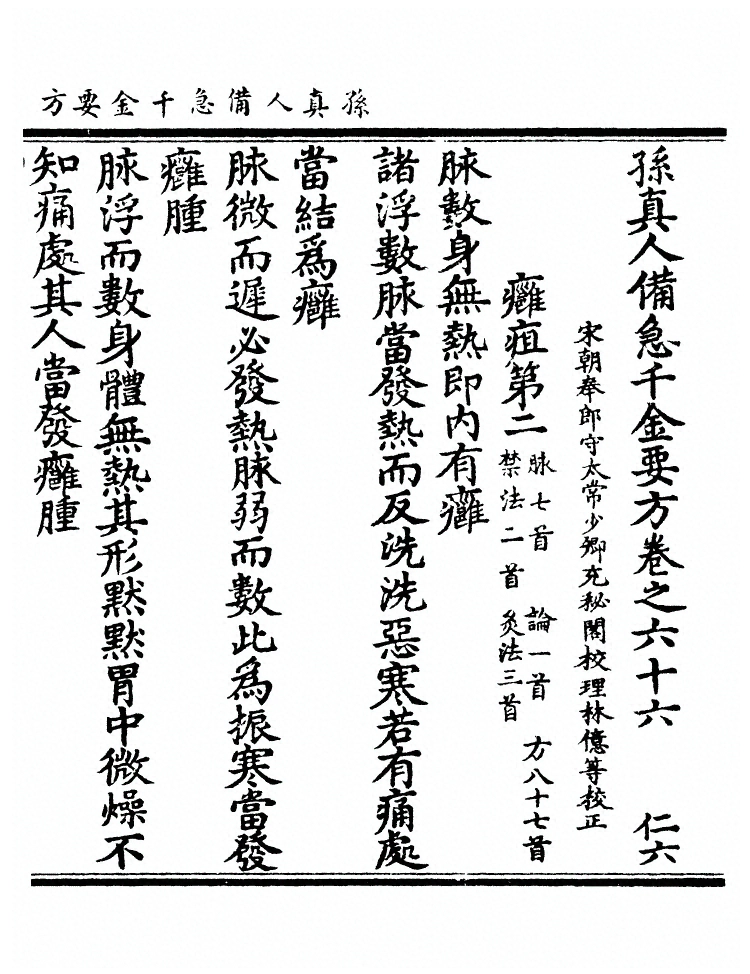 孫真人備急千金要方
孫真人備急千金要方卷之六十六　仁六
宋朝奉郎守太常少卿充秘閣校理林億等校正
癰疽第二　脉七首　論一首　方八十七首
禁法二首　灸法三首
脉數身無熱即内有癰
諸浮數脉當發熱而反洗洗惡寒若有痛處
當結爲癰
脉微而遲必發熱脉弱而數此為振寒當發
癰腫
脉浮而數身體無熱其形默默胃中微燥不
知痛處其人當發癰腫